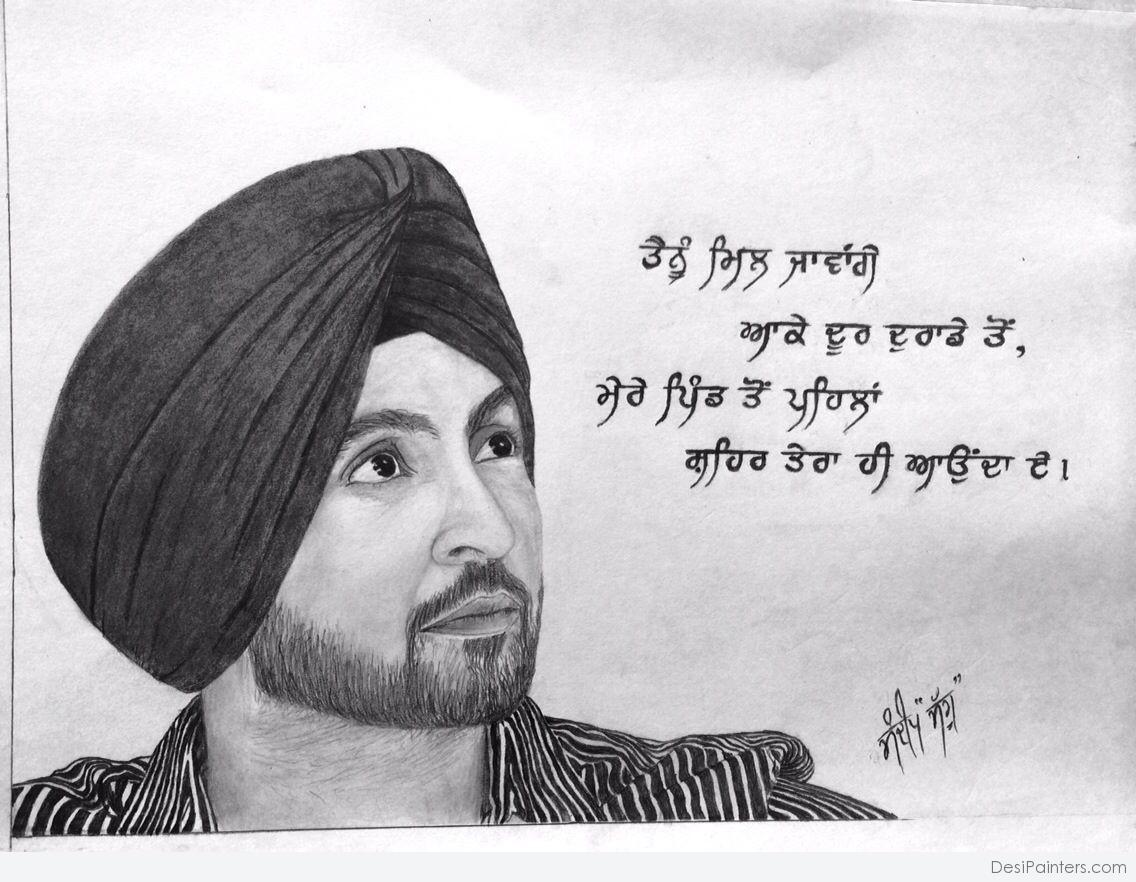 ਤੈਨੂੰ ਮਿਲ ਜਾਵਾਂਗੇ
ਆਕੇ ਦੂਰ ਦੁਰਾਡੇ ਤੋਂ,
ਮੇਰੇ ਪਿੰਡ ਤੋਂ ਪਹਿਲਾਂ
ਸ਼ਹਿਰ ਤੇਰਾ ਹੀ ਆਉਂਦਾ ਏ।
DesiPainters.com